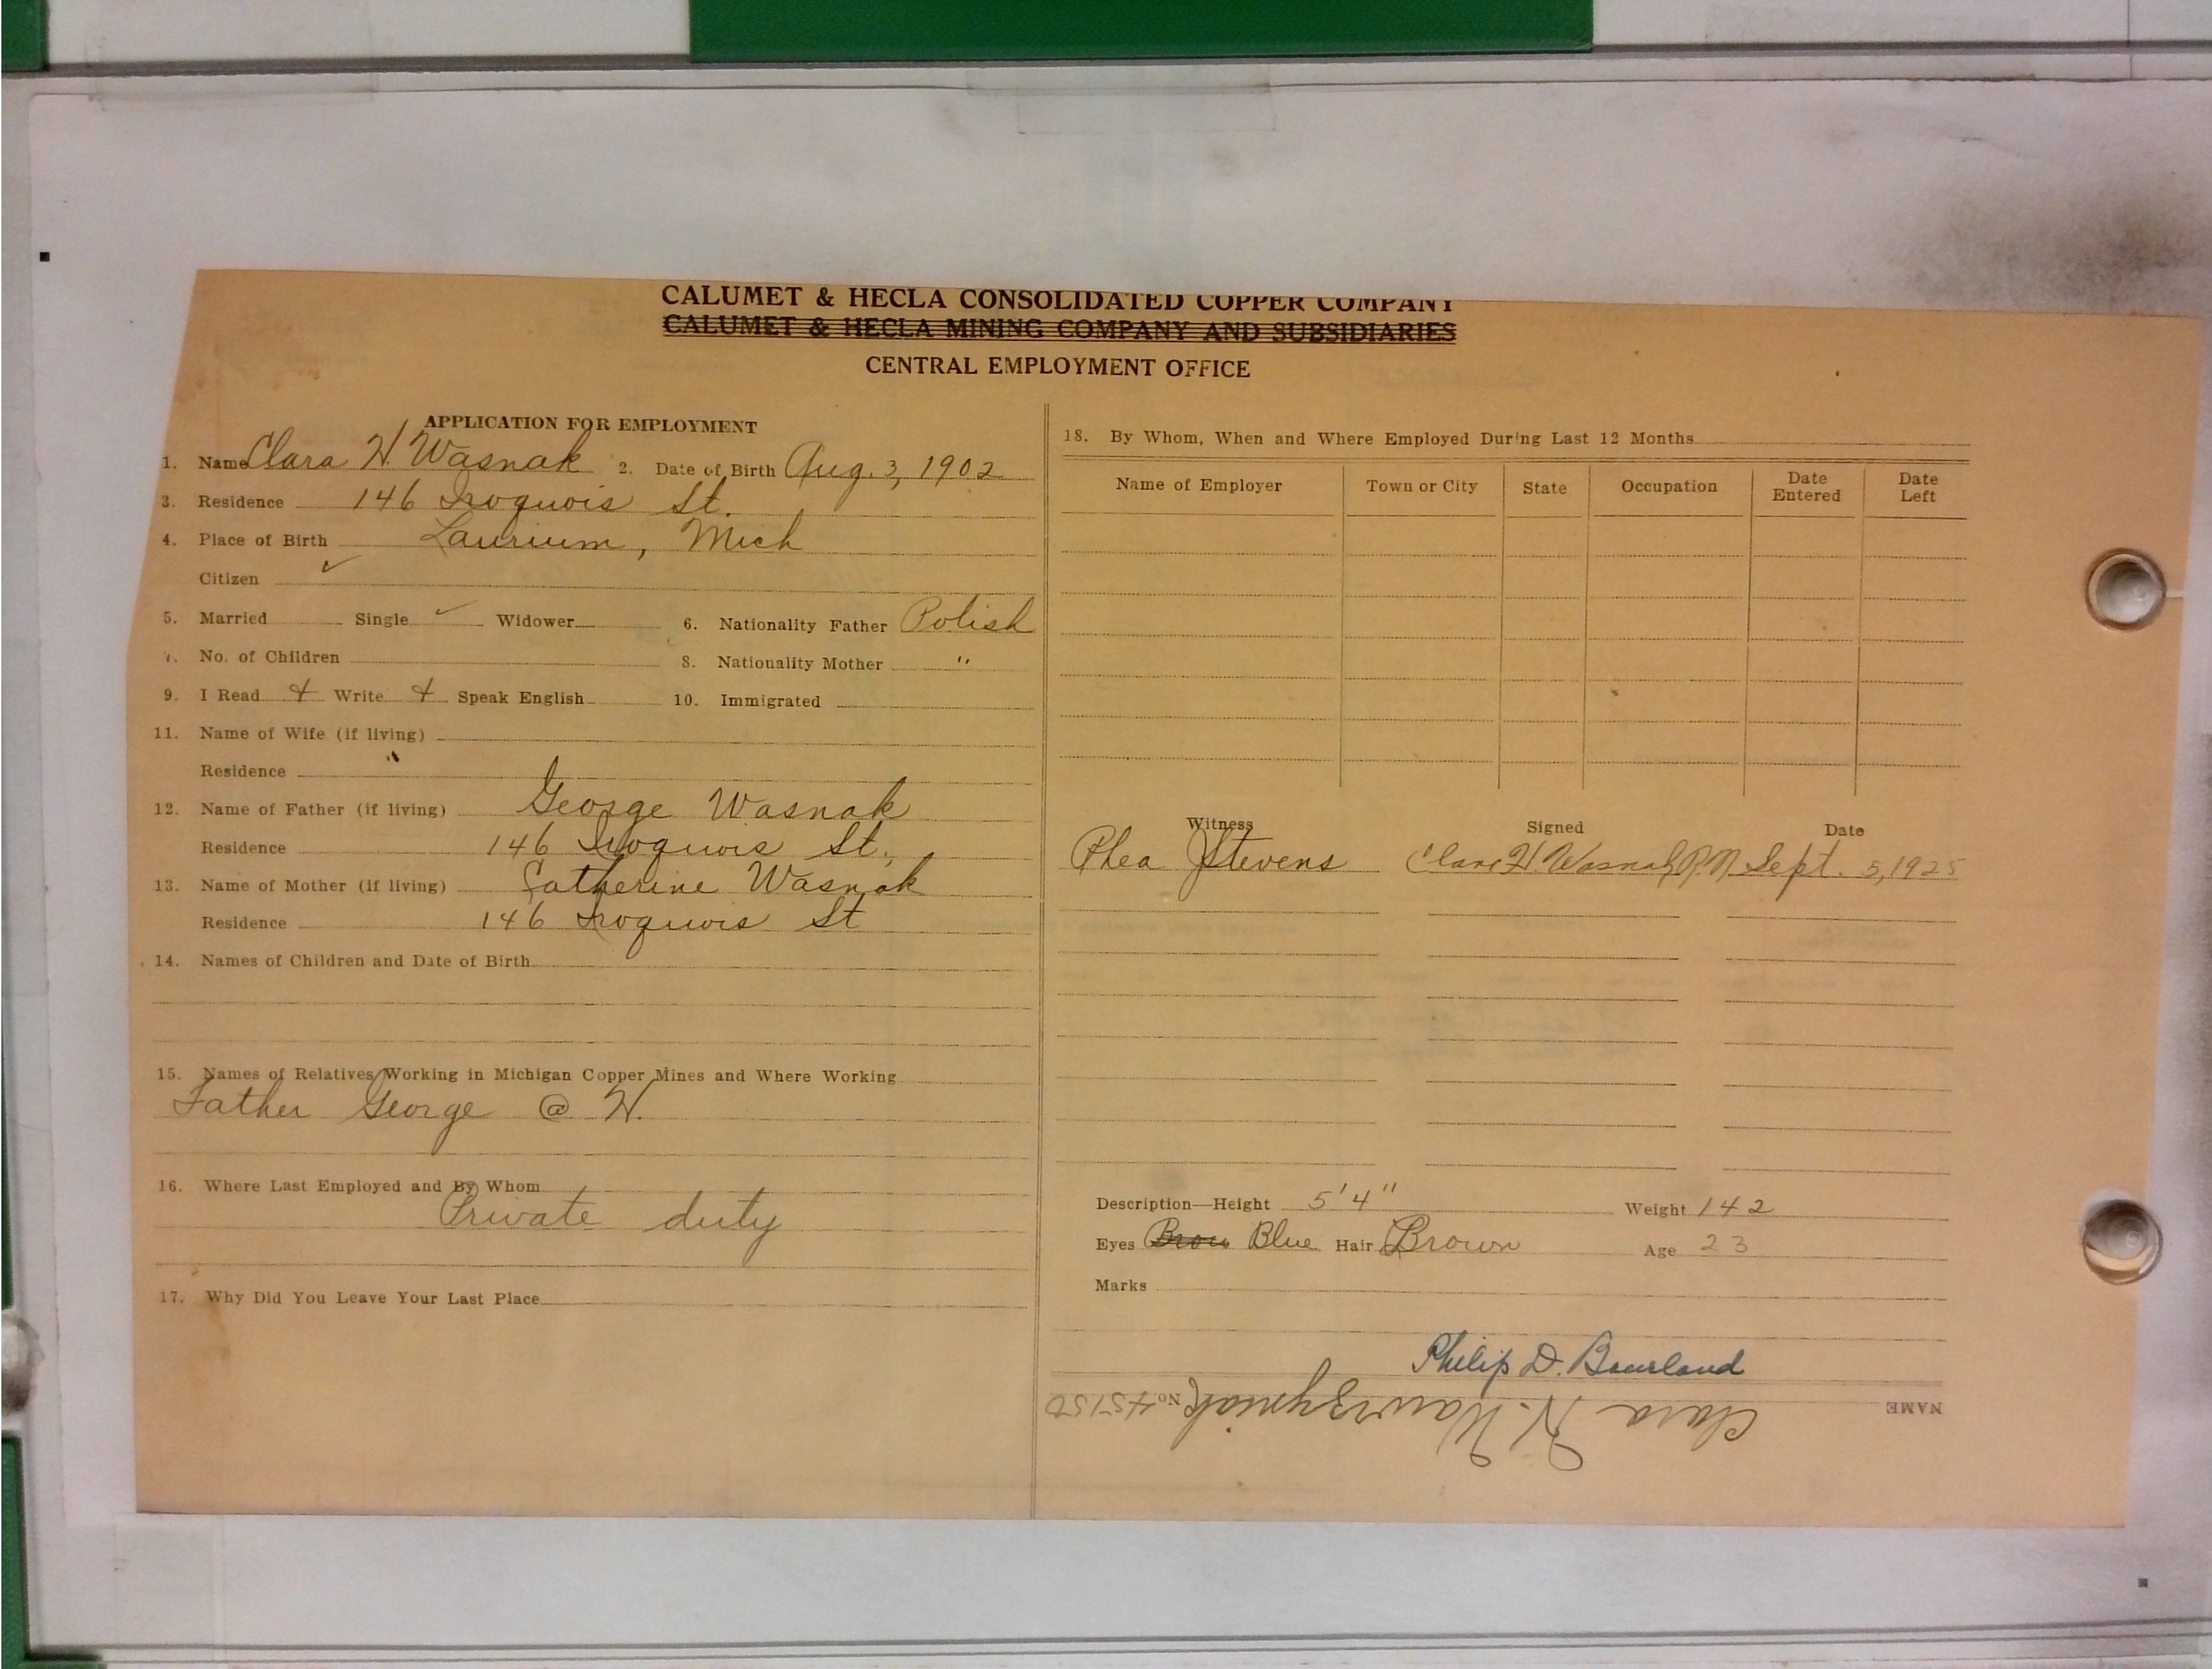 CALUMET & HECLA CONSOLIDATED COPPER COMPANY
CALUMET & HECLA MINING COMPANY AND SUBSIDIARIES
CENTRAL EMPLOYMENT OFFICE
APPLICATION FOR EMPLOYMENT
1. Name Clara H. Wasnak 2. Date of Birth Aug. 3, 1902
3. Residence 146 Iroquois St.
4. Place of Birth Laurium, Mich
Citizen ✓
5. Married Single ✓ Widower 6. Nationality Father Polish
7. No. of Children 8. Nationality Mother "
9. I Read + Write + Speak English 10. Immigrated
11. Name of Wife (if living)
Residence
12. Name of Father (if living) George Wasnak
Residence 146 Iroquois St.
13. Name of Mother (if living) Catherine Wasnak
Residence 146 Iroquois St
14. Names of Children and Date of Birth
15. Names of Relatives Working in Michigan Copper Mines and Where Working
Father George @ H.
16. Where Last Employed and By Whom
Private duty
17. Why Did You Leave Your Last Place
18. By Whom, When and Where Employed During Last 12 Months
Name of Employer Town or City State Occupation Date Entered Date Left
Witness Signed Date
Rhea J Stevens Clara H. Wasnak R.N. Sept. 5, 1925
Description—Height 5'4" Weight 142
Eyes Brow Blue Hair Brown Age 23
Marks
Philip D. Bourland
NAME Clara H. Wawrzyniak No. 45150